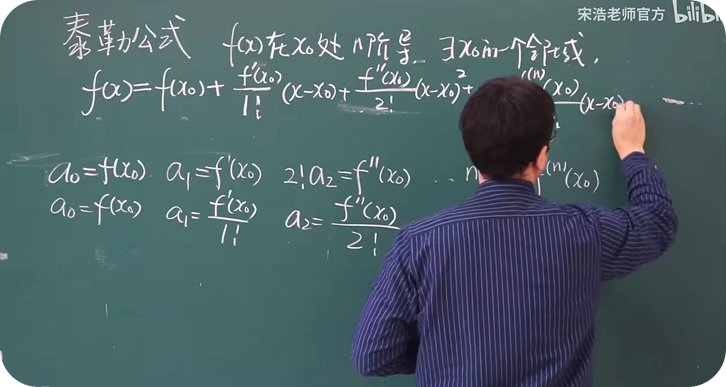 宋浩老师官方 bilibili
泰勒公式 f(x)在x₀处n阶导, ∃x₀的一个邻域,
f(x)=f(x₀)+f'(x₀)/1!(x-x₀)+f''(x₀)/2!(x-x₀)²+ ⁽ⁿ⁾(x₀)(x-x₀)
a₀=f(x₀) a₁=f'(x₀) 2!a₂=f''(x₀) … n ⁽ⁿ⁾(x₀)
a₀=f(x₀) a₁=f'(x₀)/1! a₂=f''(x₀)/2!